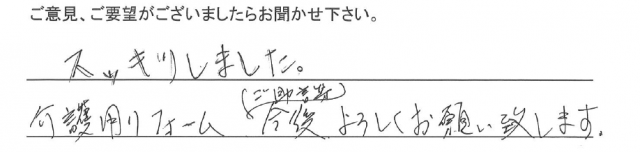 ご意見、ご要望がございましたらお聞かせ下さい。
スッキリしました。
(ご助言等)
介護用リフォーム 今後よろしくお願い致します。